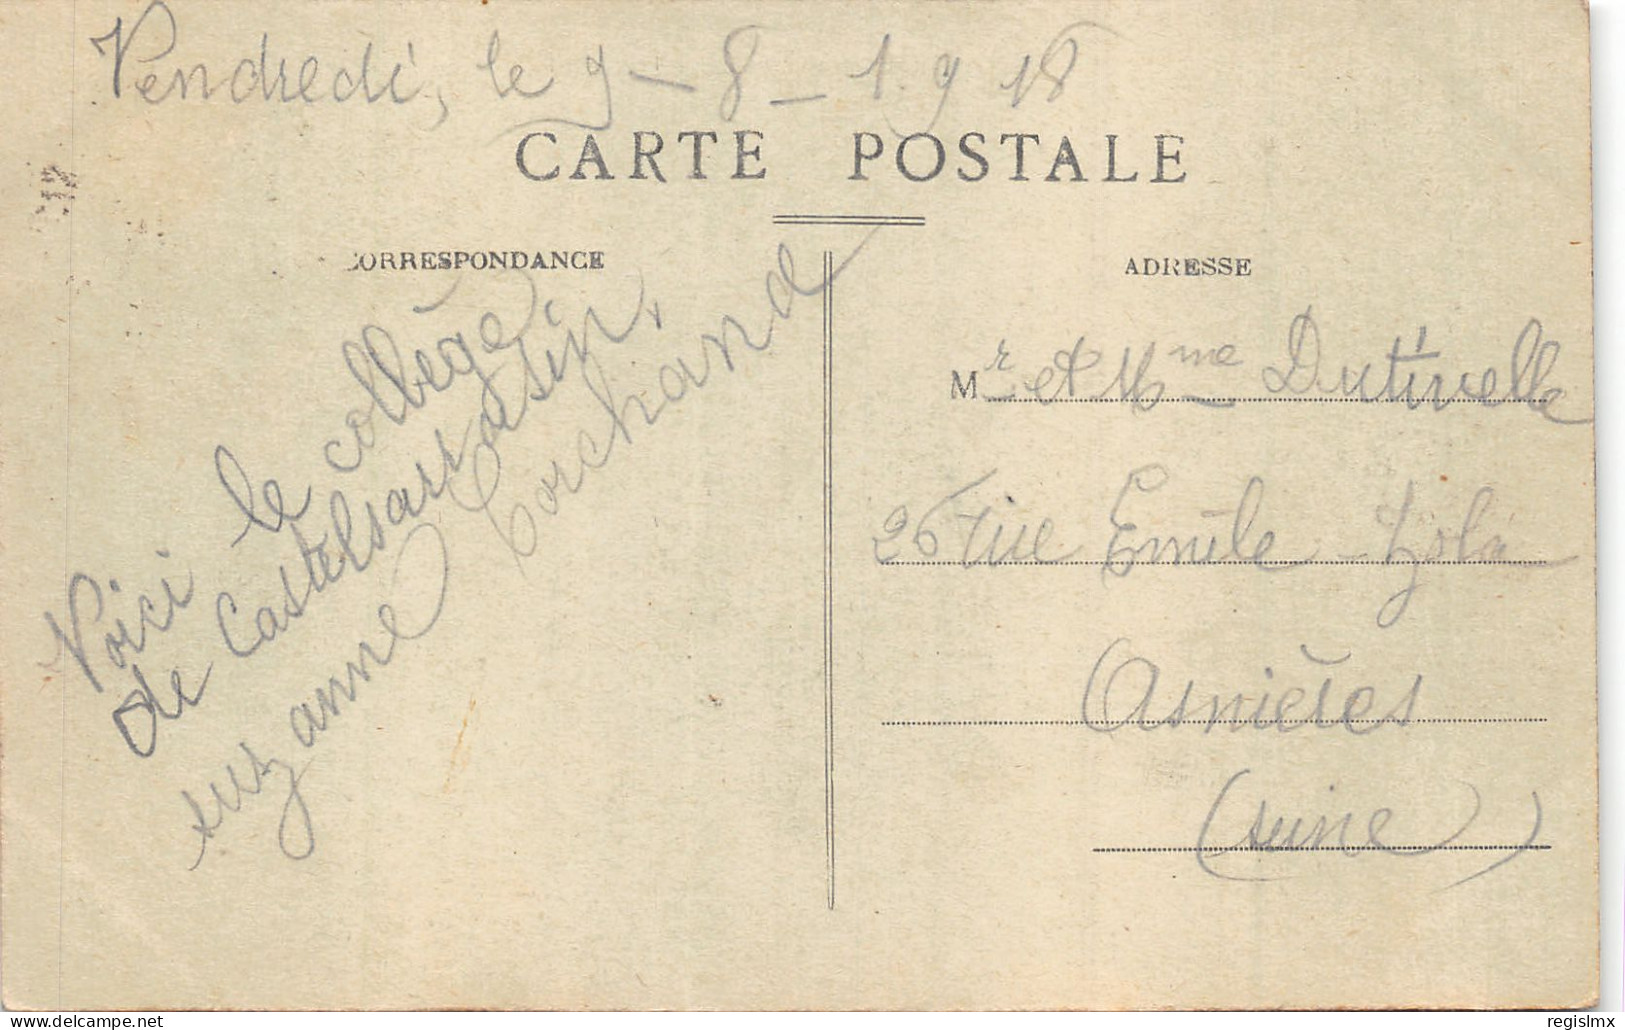 Vendredi, le 9-8-1918
CARTE POSTALE
CORRESPONDANCE
ADRESSE
Voici le collège
de Castelsarrasin.
suzanne Corchand
Mr et Mme Dutivelle
26 rue Emile-Zola
Asnières
(seine)
delcampe.net
regislmx